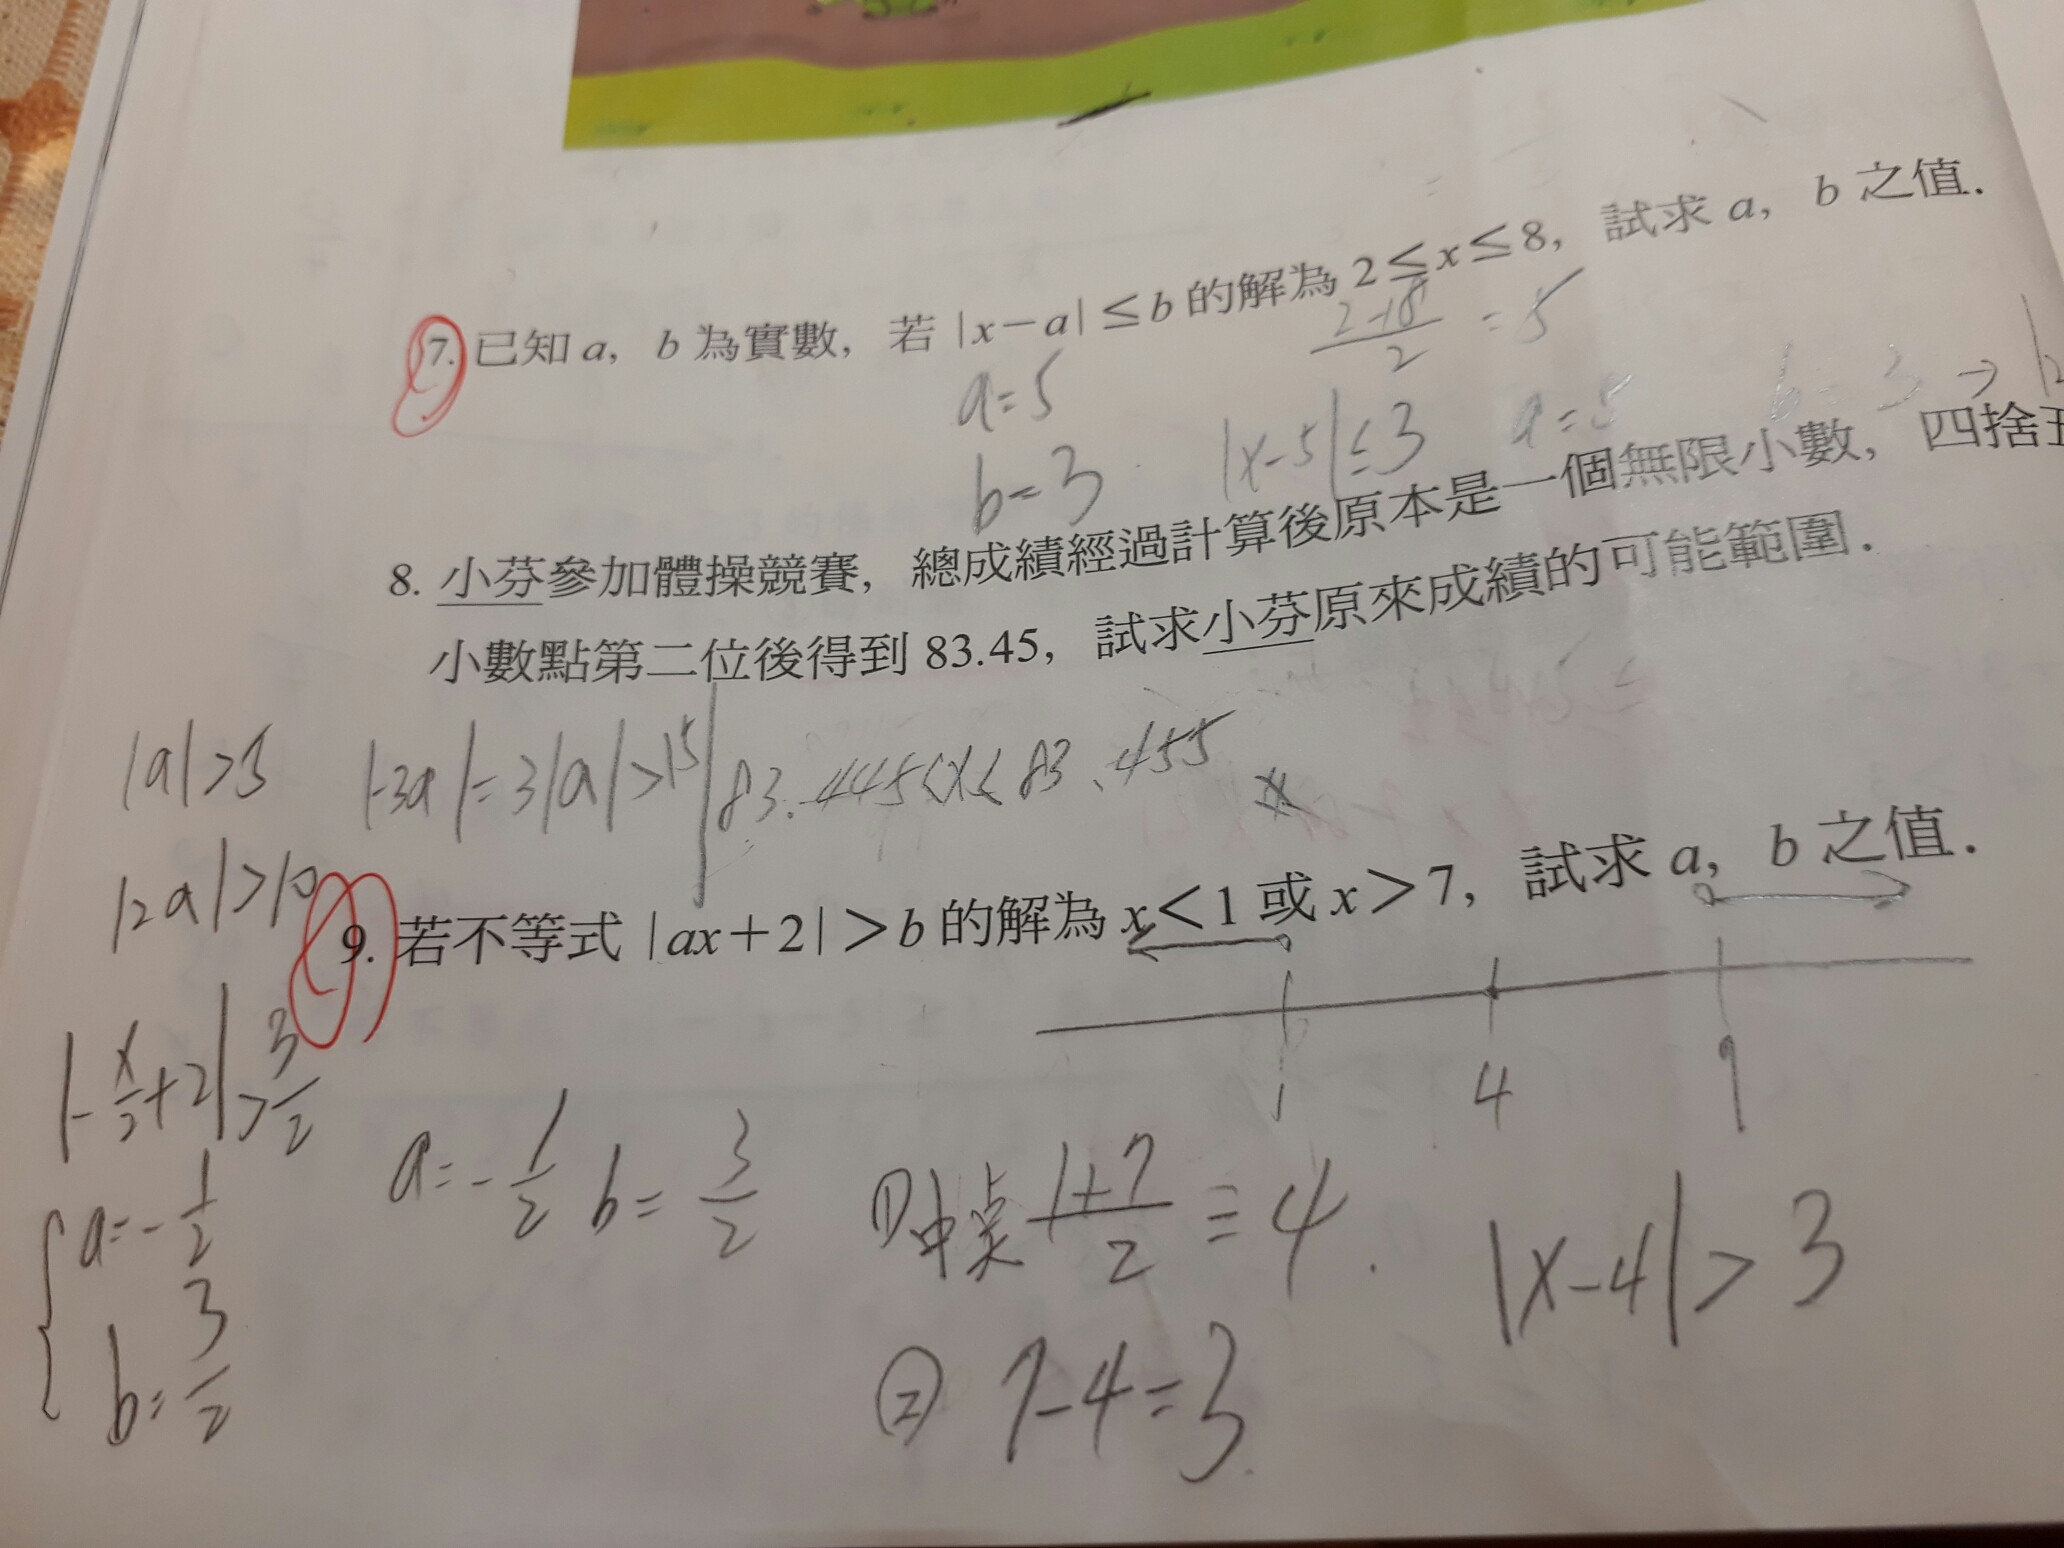 7. 已知 a, b 為實數, 若 |x-a|≤b 的解為 2≤x≤8, 試求 a, b 之值.
2+8/2 = 5
a=5
b=3
|x-5|≤3
a=5
b=3 →
8. 小芬參加體操競賽, 總成績經過計算後原本是一個無限小數, 四捨五
小數點第二位後得到 83.45, 試求小芬原來成績的可能範圍.
|a|>5
|-3a|=3|a|>15
83.445≤x≤83.455
|2a|>10
9. 若不等式 |ax+2|>b 的解為 x<1 或 x>7, 試求 a, b 之值.
1 4 7
|-x/2+2|>3/2
a=-1/2
b=3/2
a=-1/2 b=3/2
①中点 1+7/2 = 4.
|x-4|>3
② 7-4=3.